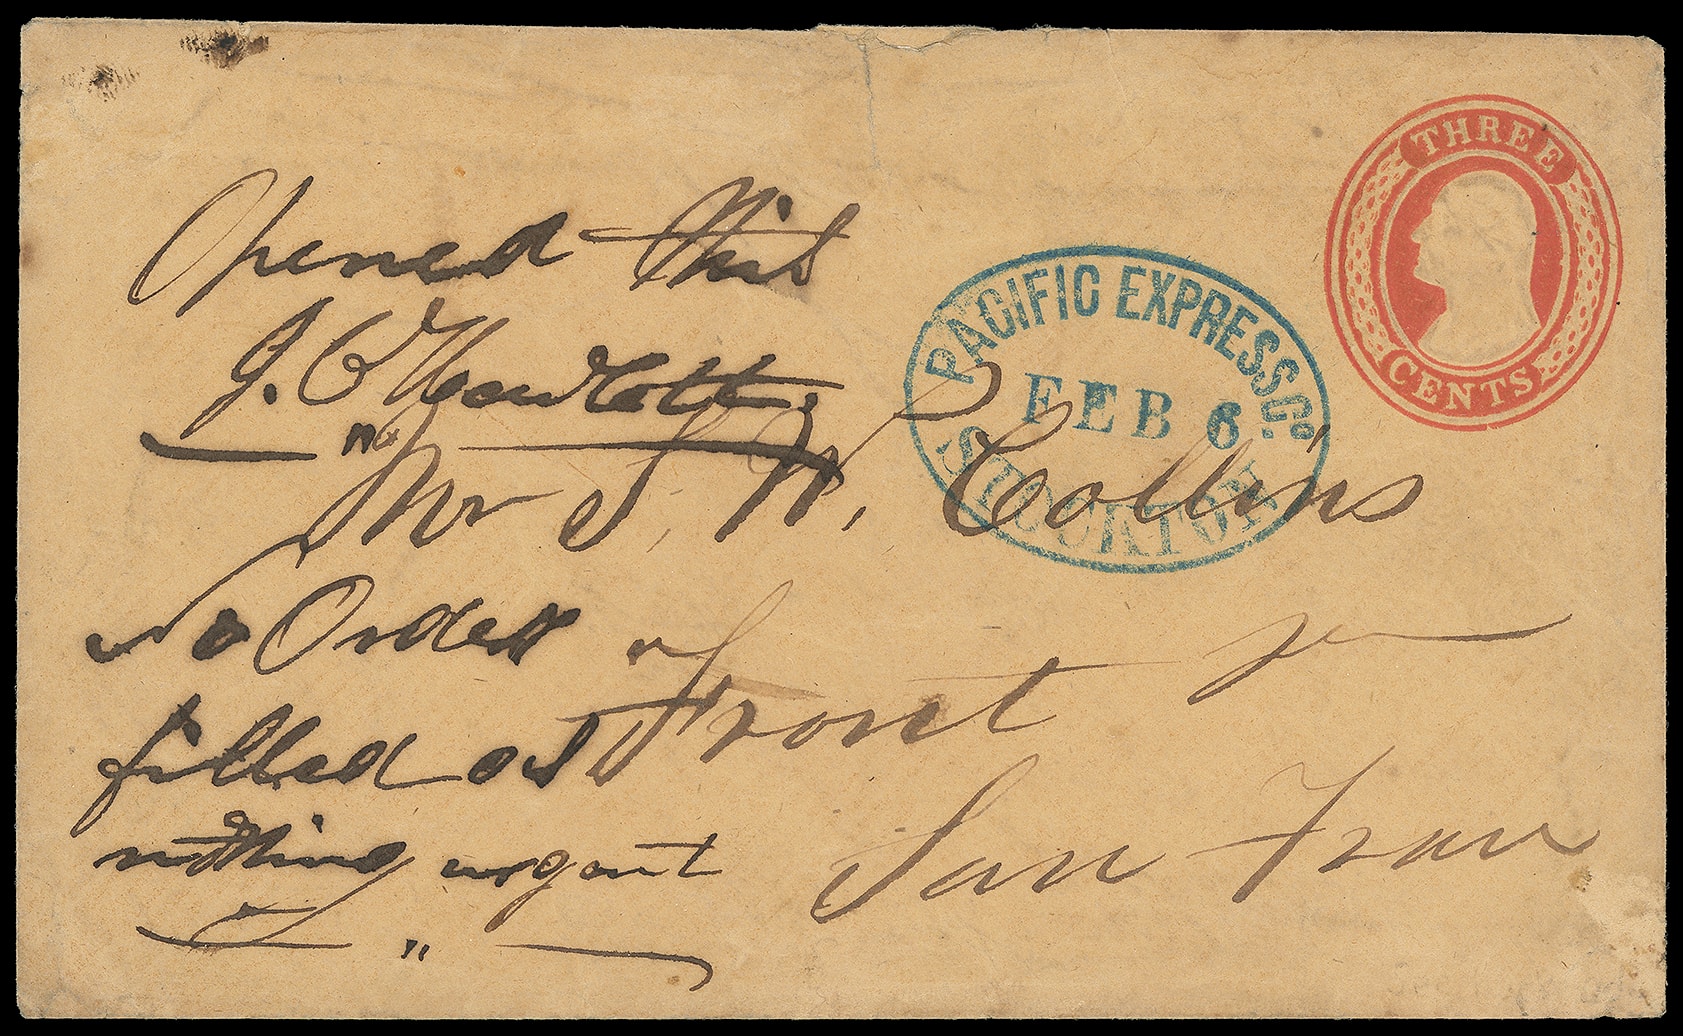 THREE
CENTS
PACIFIC EXPRESS Co.
FEB 6
STOCKTON
Opened this
J. C.
Mr S. W. Collins
Front
San Fran
No Orders
filled as
nothing urgent